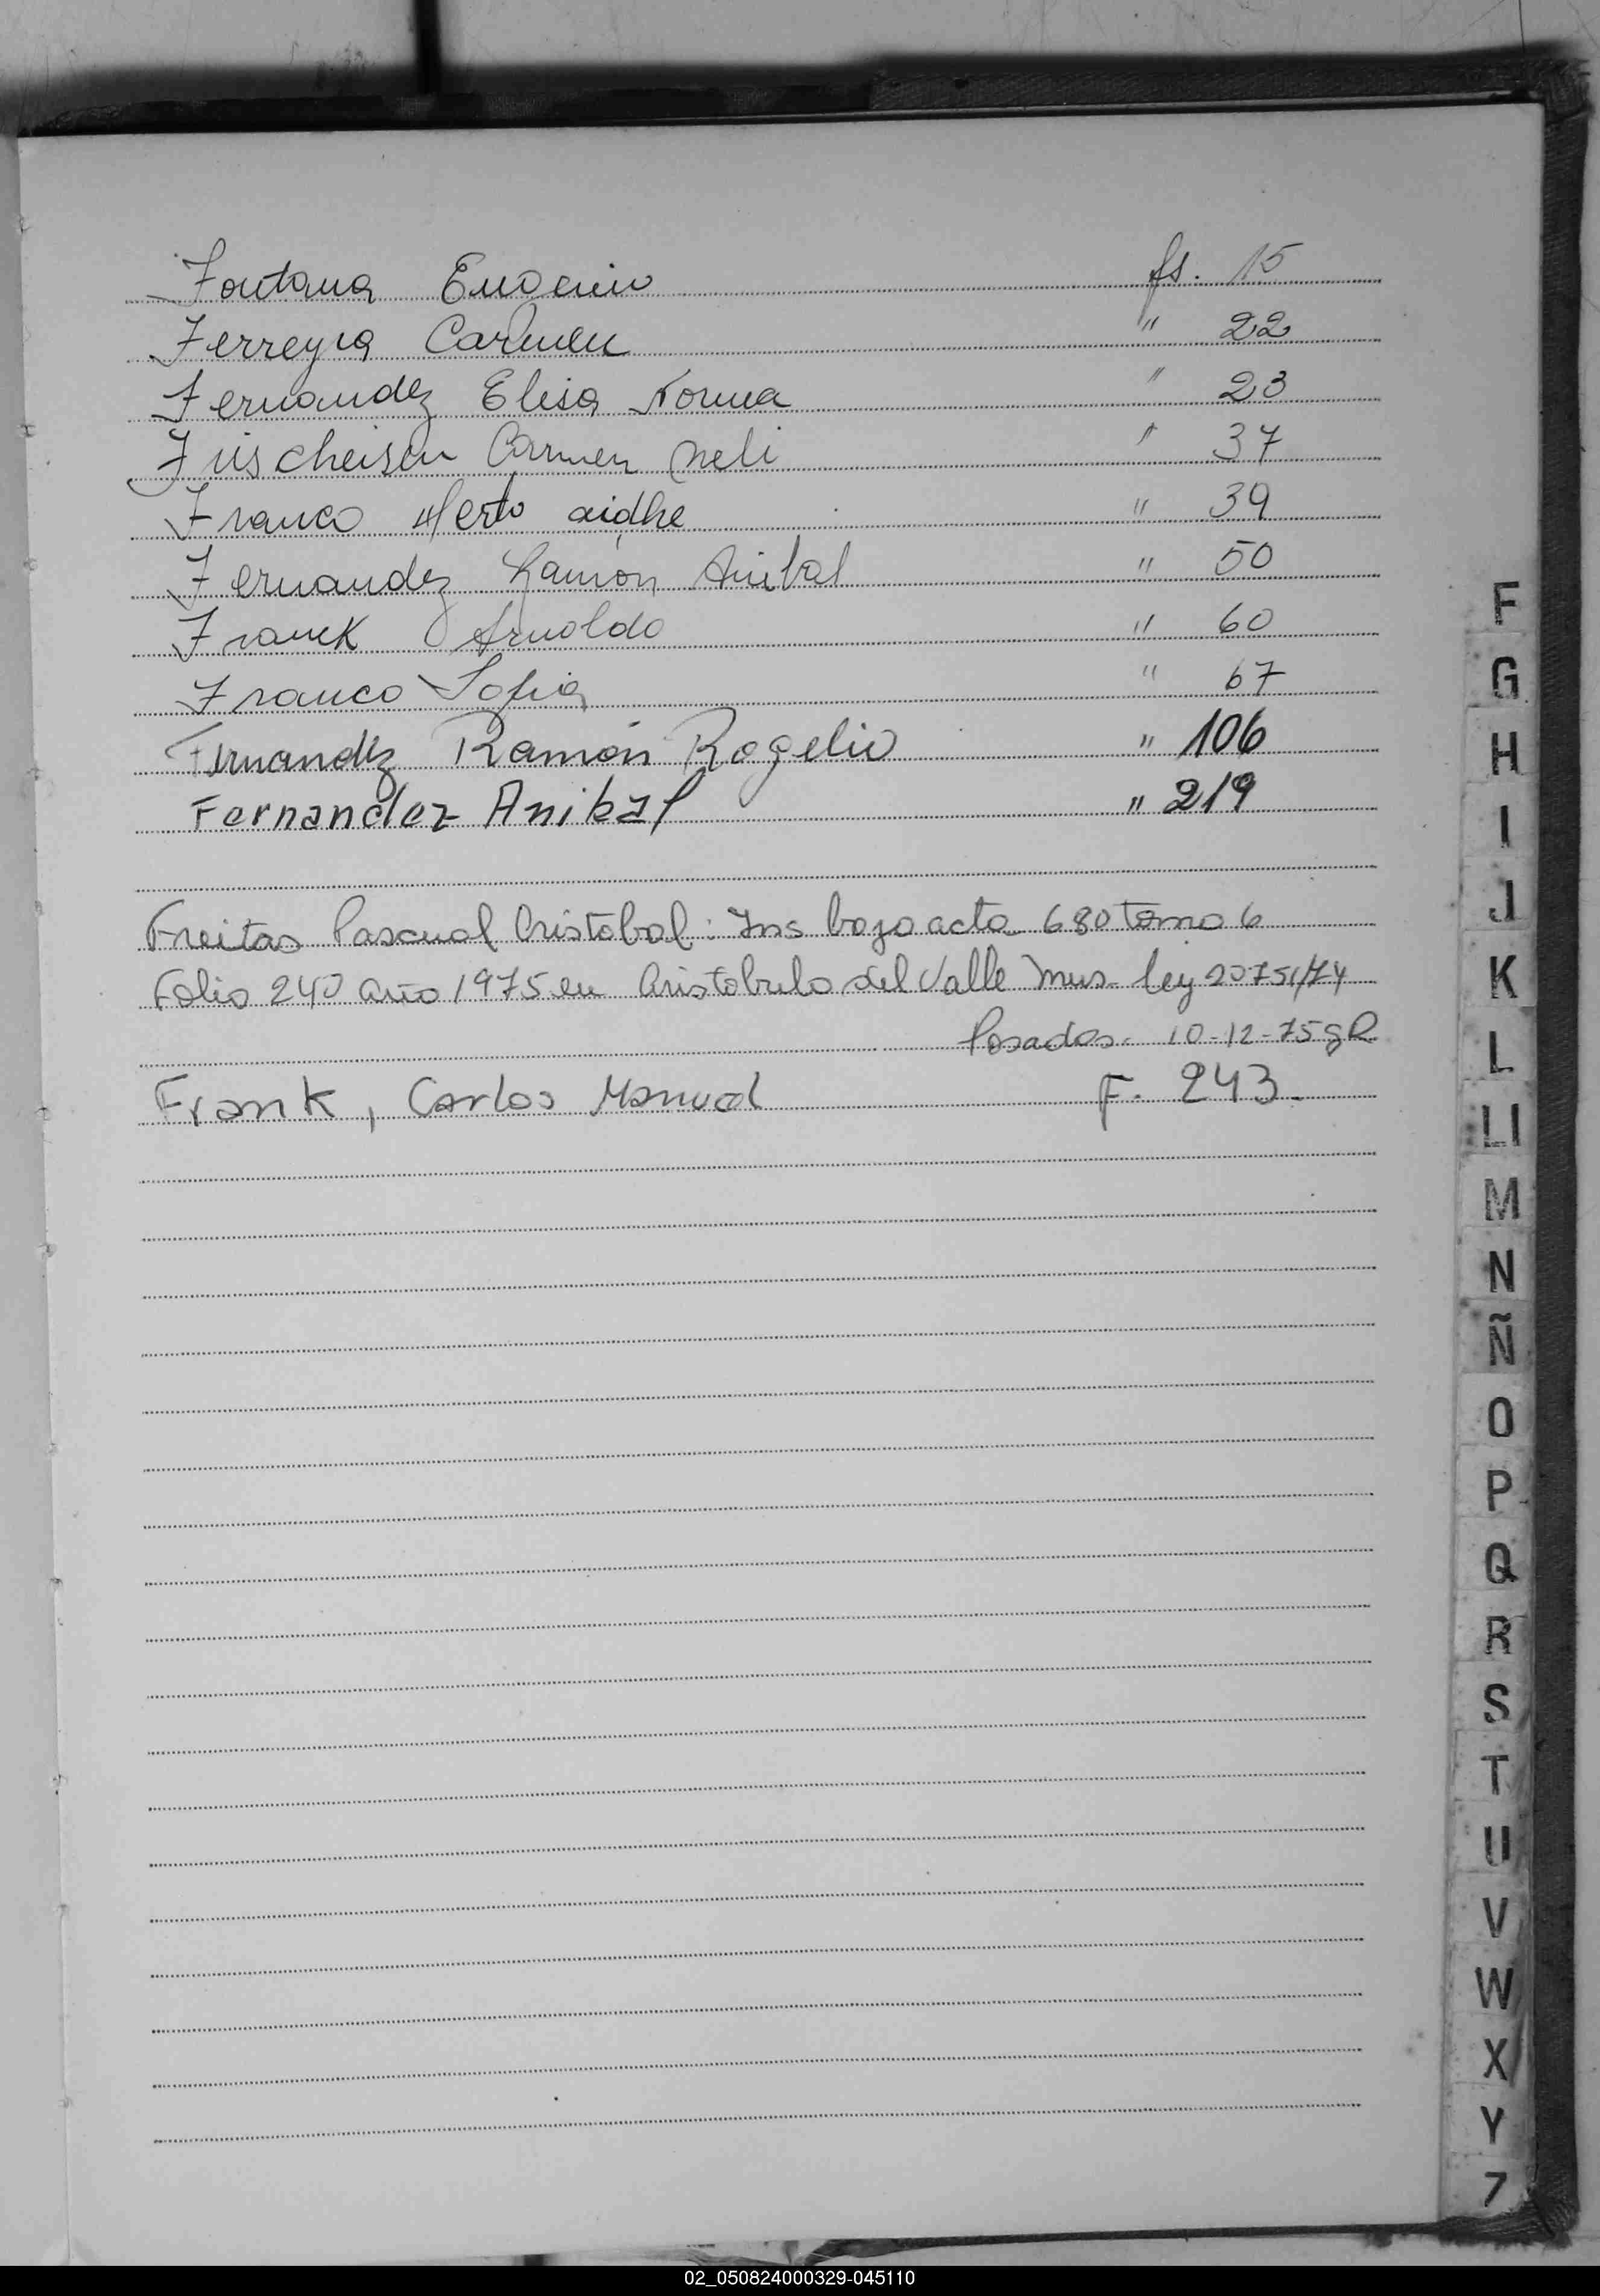 Fontana Eugenio fs. 15
Ferreyra Carmen " 22
Fernandez Elisa Norma " 23
Carmen Neli " 37
Franco aidhe " 39
Fernandez Ramón Anibal " 50
Franck Arnoldo " 60
Franco Sofia " 67
Fernandez Ramón Rogelio " 106
Fernandez Anibal " 219
Freitas Pascual Cristobal: Ins bajo acta 680 Tomo 6
Folio 240 año 1975 en Aristobulo del Valle Mnes. ley 20751/74
Posadas. 10-12-75
Frank, Carlos Manuel F. 243.
F
G
H
I
J
K
L
Ll
M
N
Ñ
O
P
Q
R
S
T
U
V
W
X
Y
Z
02_050824000329-045110